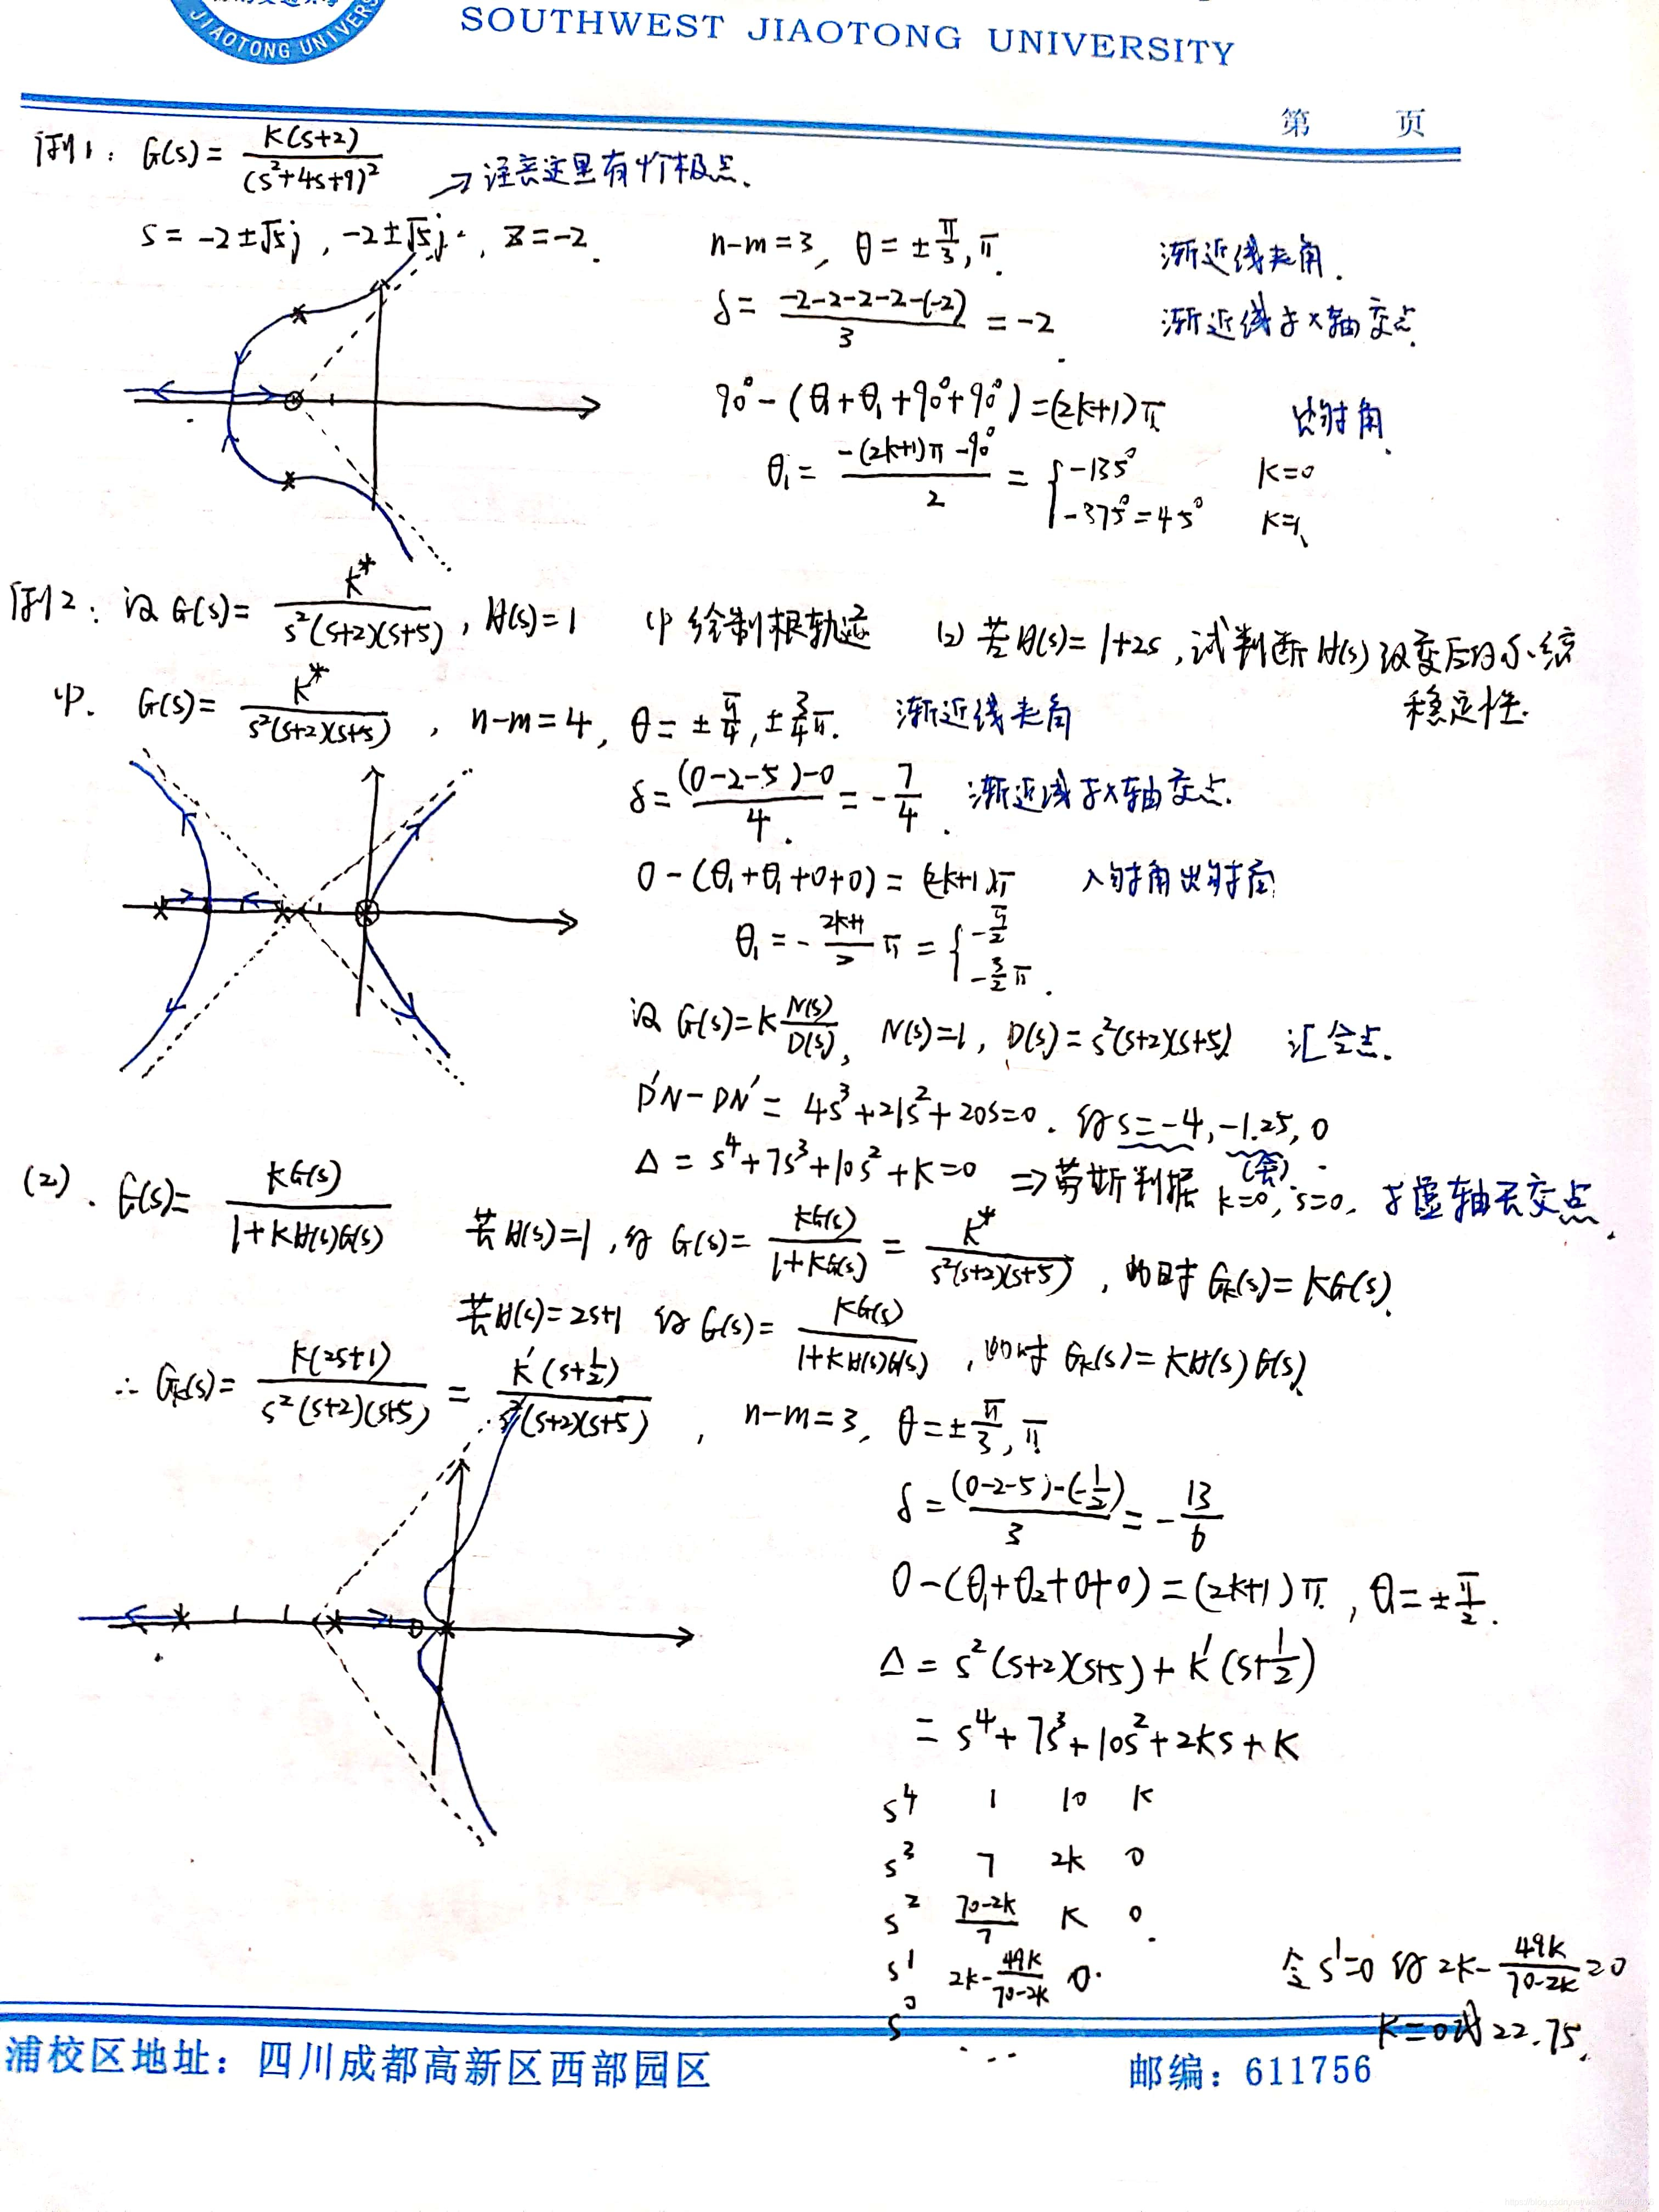 JIAOTONG UNIVERS
SOUTHWEST JIAOTONG UNIVERSITY
第 页
例1: G(s)= K(s+2)/(s²+4s+9)² → 注意这里有4个极点.
s = -2±√5j , -2±√5j , z=-2.
n-m=3, θ=±π/3, π. 渐近线夹角.
δ= (-2-2-2-2-(-2))/3 = -2. 渐近线与x轴交点.
90°-(θ₁+θ₁+90°+90°)=(2k+1)π 出射角.
θ₁= (-(2k+1)π-90°)/2 = { -135° k=0
-375°=45° k=1.
例2: 设G(s)= K*/(s²(s+2)(s+5)), H(s)=1 (1) 绘制根轨迹 (2) 若H(s)=1+2s, 试判断H(s)改变后的系统
稳定性.
(1). G(s)= K*/(s²(s+2)(s+5)), n-m=4, θ=±π/4, ±3/4π. 渐近线夹角
δ= ((0-2-5)-0)/4 = -7/4. 渐近线与x轴交点.
0-(θ₁+θ₁+0+0)=(2k+1)π 入射角出射角
θ₁=-(2k+1)/2 π = { -π/2
-3/2π.
设G(s)=K N(s)/D(s), N(s)=1, D(s)=s²(s+2)(s+5) 汇合点.
D'N-DN'= 4s³+21s²+20s=0. 得s=-4, -1.25, 0
(舍)
Δ = s⁴+7s³+10s²+K=0 ⇒劳斯判据 k=0, s=0, 与虚轴无交点.
(2). G(s)= KG(s)/(1+KH(s)G(s)) 若H(s)=1, 得G(s)= KG(s)/(1+KG(s)) = K*/(s²(s+2)(s+5)), 此时Gk(s)=KG(s).
若H(s)=2s+1 得G(s)= KG(s)/(1+KH(s)G(s)), 此时Gk(s)=KH(s)G(s)
∴ Gk(s)= K(2s+1)/(s²(s+2)(s+5)) = K'(s+1/2)/(s²(s+2)(s+5)), n-m=3, θ=±π/3, π
δ= ((0-2-5)-(-1/2))/3 = -13/6
0-(θ₁+θ₂+0+0)=(2k+1)π, θ₁=±π/2.
Δ = s²(s+2)(s+5)+K'(s+1/2)
= s⁴+7s³+10s²+2Ks+K
s⁴ 1 10 K
s³ 7 2K 0
s² (70-2K)/7 K 0.
s¹ 2K-49K/(70-2K) 0. 令s¹=0 得2K-49K/(70-2K)=0
s⁰ ... K=0或22.75.
浦校区地址: 四川成都高新区西部园区 邮编: 611756